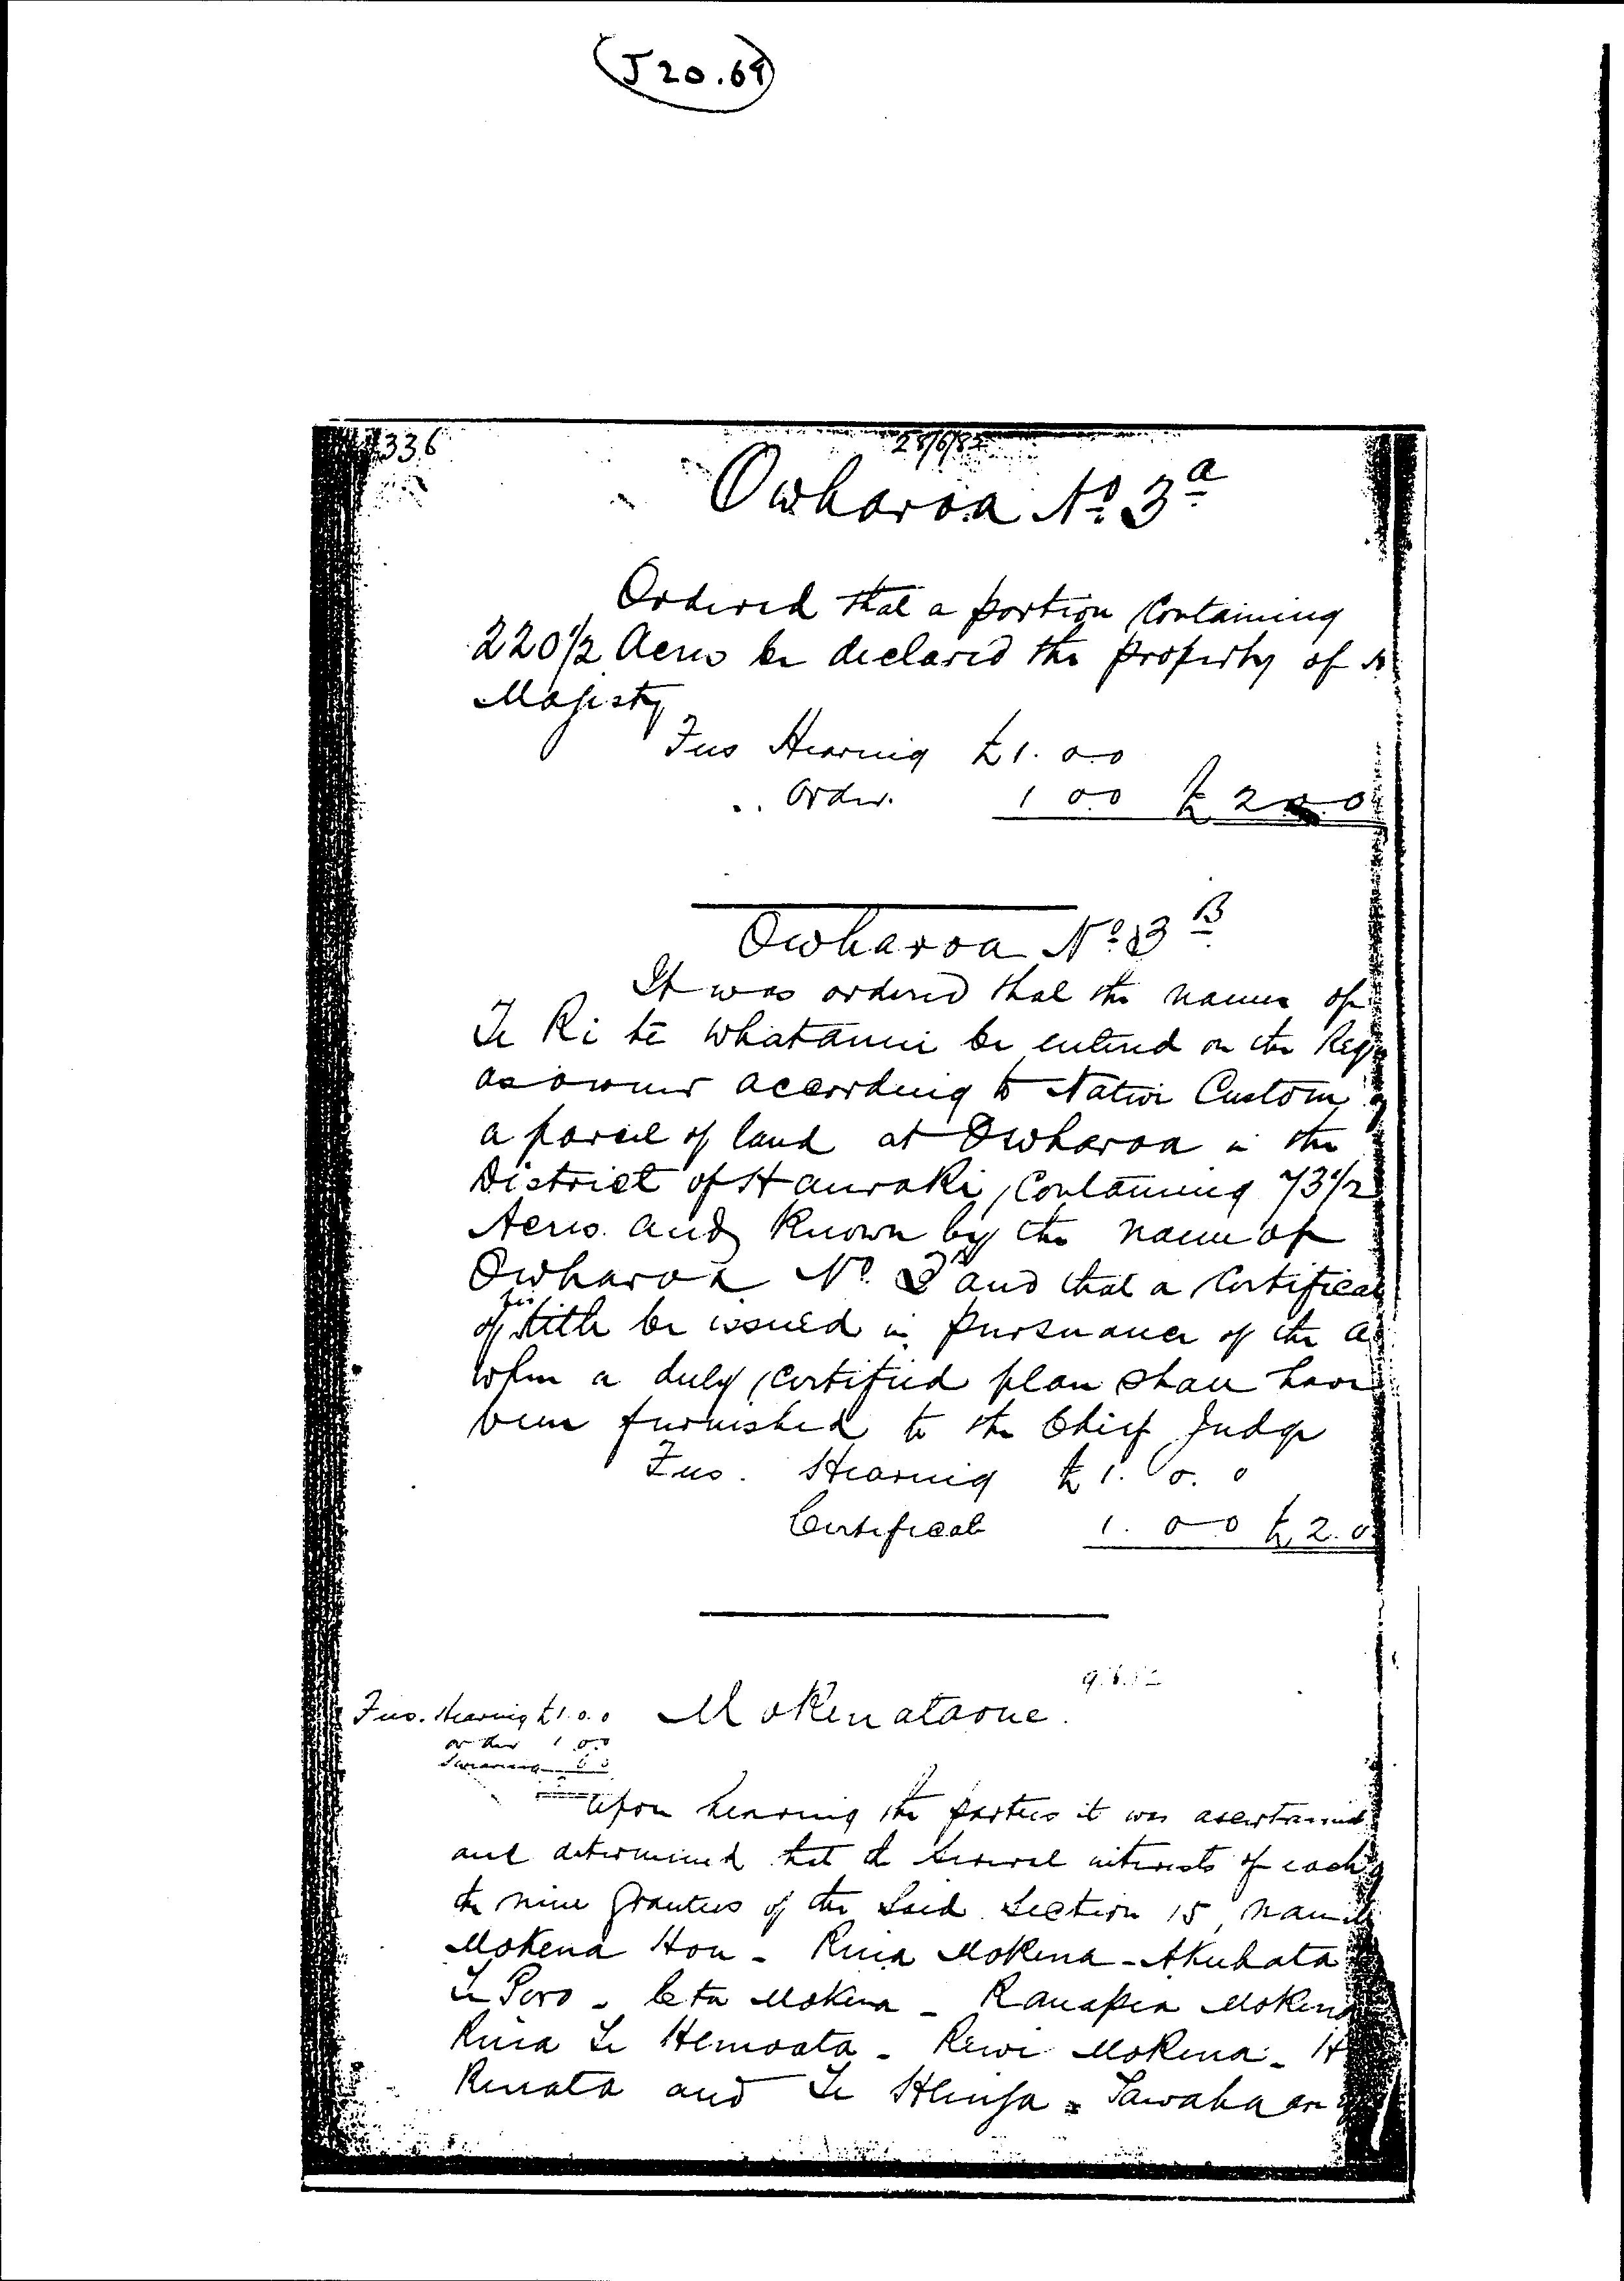 J 20.69
336
28/6/82
Owharoa No. 3a
Ordered that a portion containing
220 1/2 Acres be declared the property of
Majesty
Fees Hearing £1. 0.0
.. Order. 1 0.0 £ 2
Owharoa No. 3 B
It was ordered that the name of
Te Ri te Whatanui be entered on the Reg
as owner according to Native Custom of
a parcel of land at Owharoa in the
District of Hauraki, Containing 73 1/2
Acres and known by the name of
Owharoa No. 3 B and that a Certificat
of title be issued in pursuance of the
when a duly certified plan shall have
been furnished to the Chief Judge
Fees. Hearing £ 1. 0. 0
Certificate 1. 0 0 £ 2. 0
Fees. Hearing £1.0.0 Mokenataone.
order 1 0.0
Swearing
Upon hearing the parties it was ascertained
and determined that the several interests of each
the nine Grantees of the said Section 15, namely
Mokena Hou - Rina Mokena - Akuhata
Te - Mokena - Ranapia Mokena
Te - Rewi Mokena - H
Renata and Te